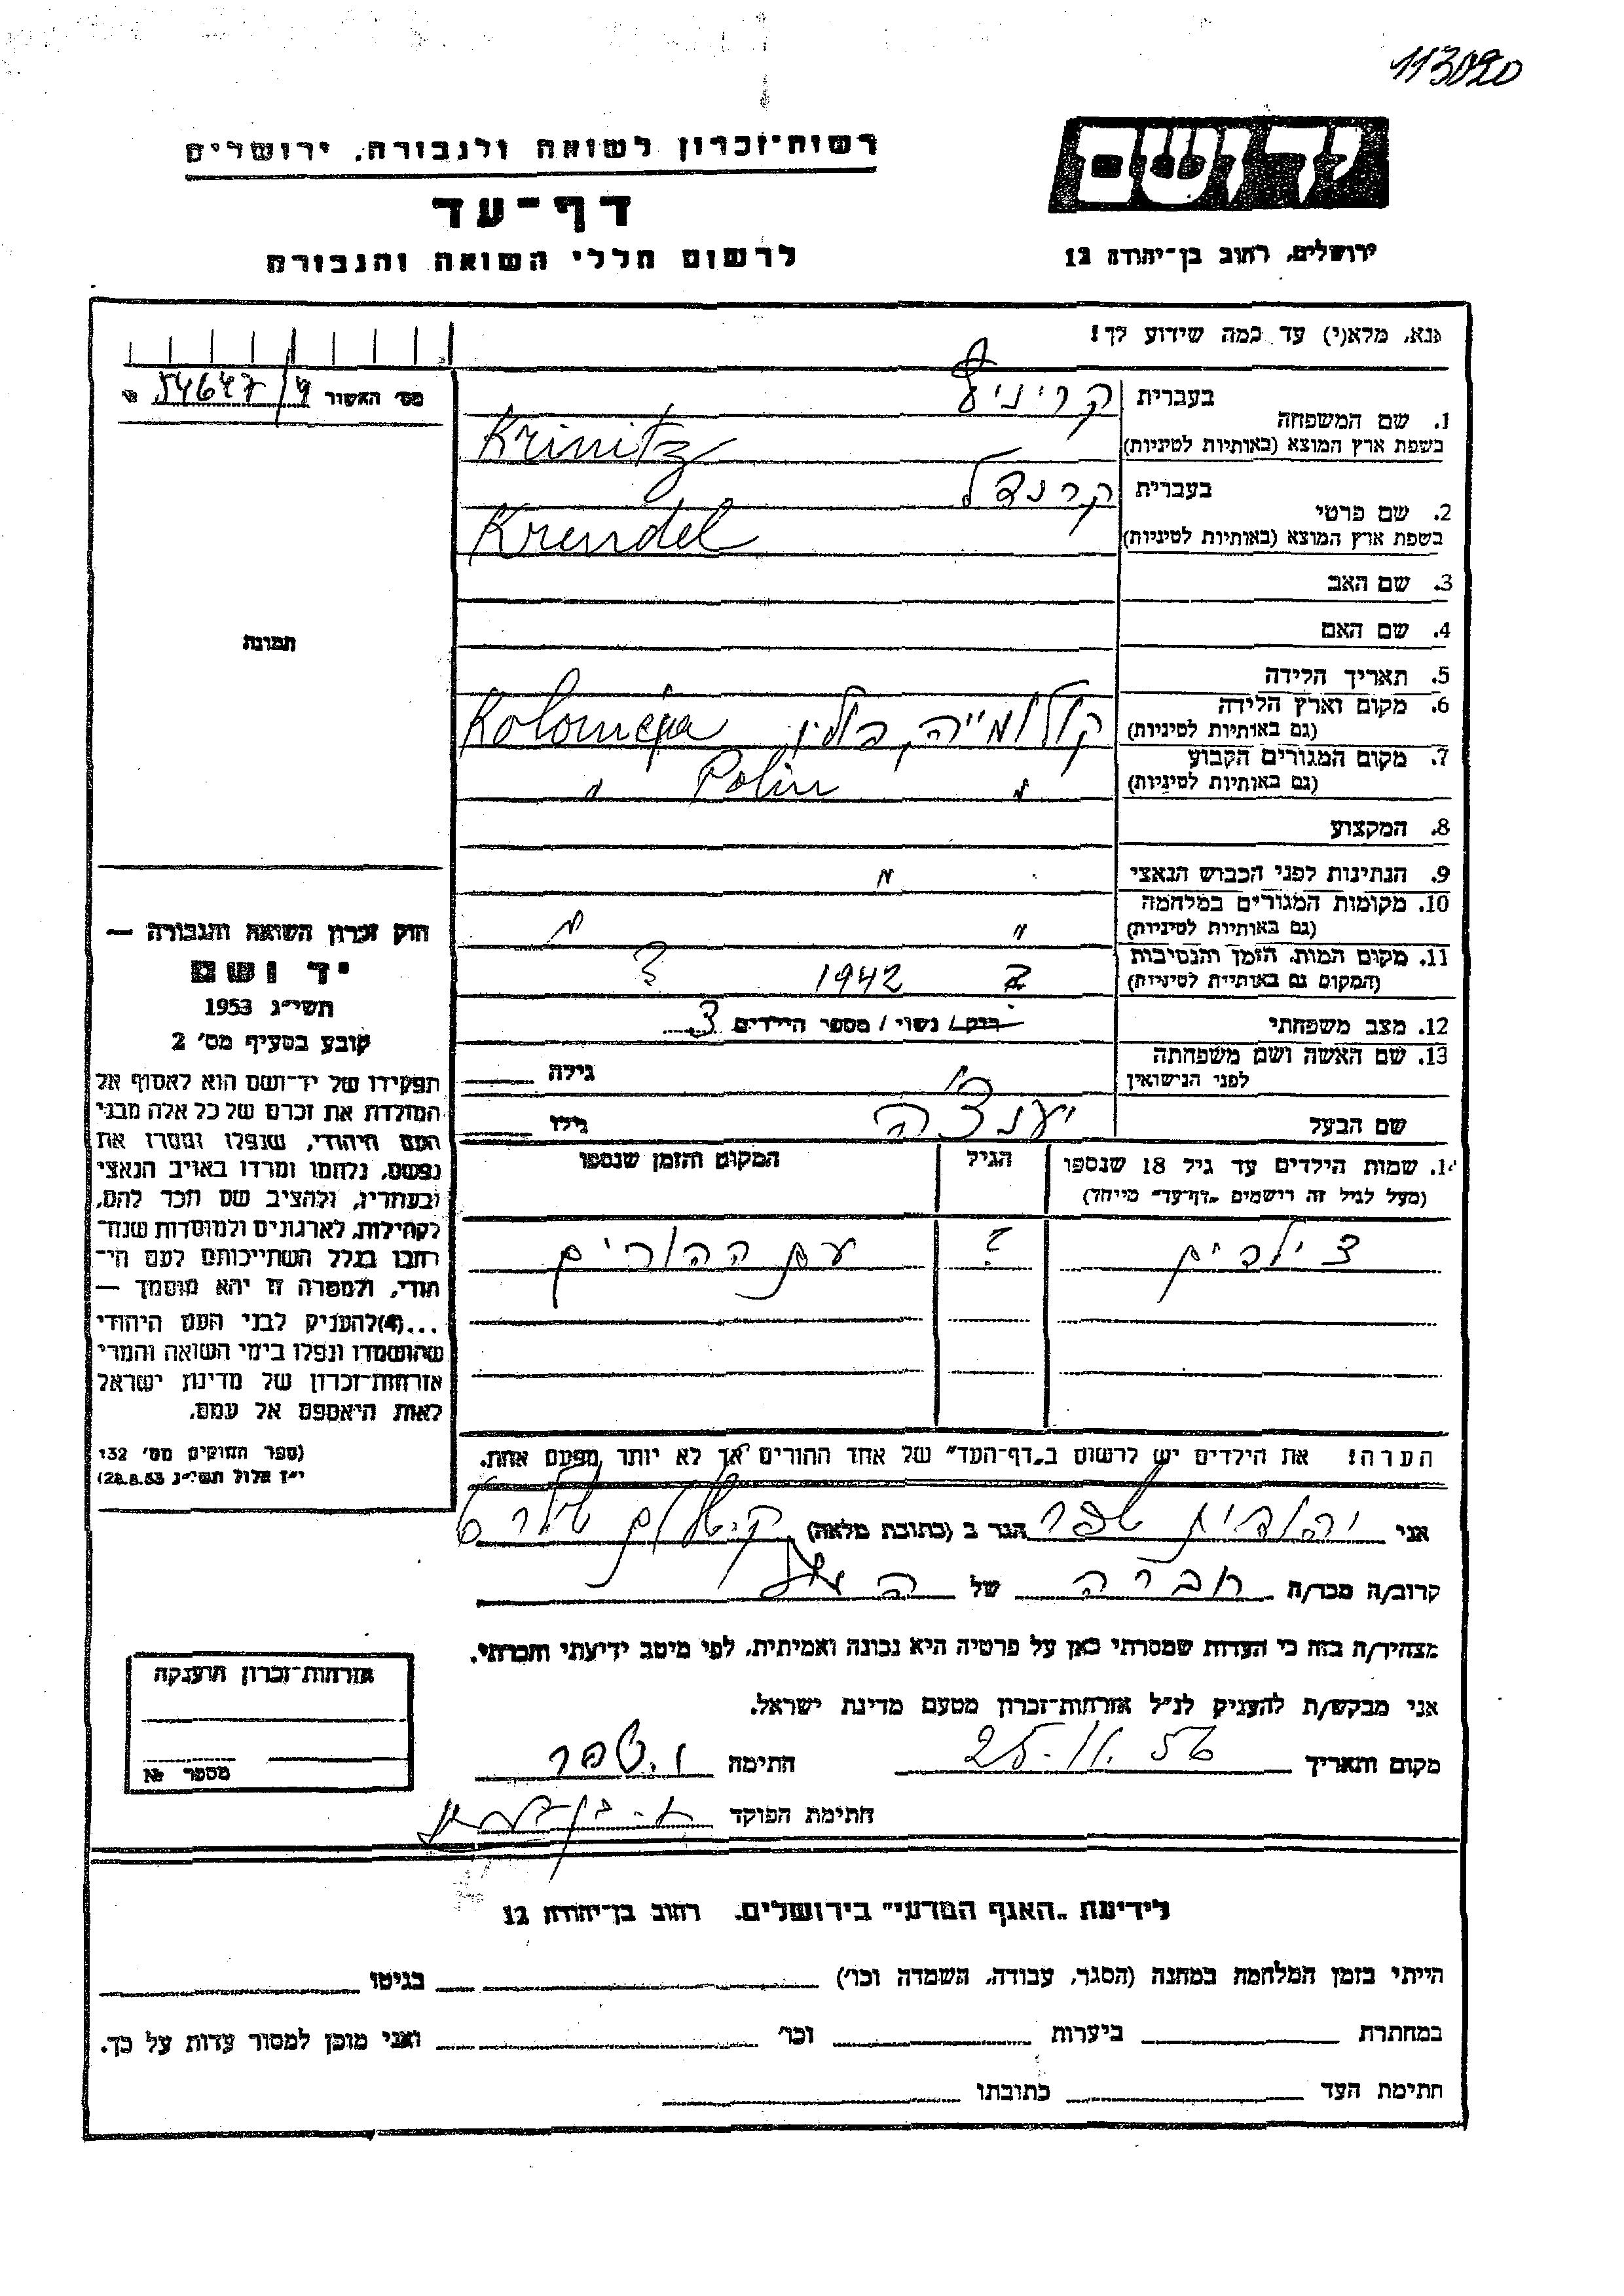 113090
רשות־זכרון לשואה ולגבורה. ירושלים
יד ושם
דף־עד
לרשום חללי השואה והגבורה
ירושלים, רחוב בן־יהודה 12
נא, מלא(י) עד כמה שידוע לך!
מס׳ האשור 54647/4
1. שם המשפחה בעברית קריניץ
בשפת ארץ המוצא (באותיות לטיניות) Krinitz
2. שם פרטי בעברית קרנדל
בשפת ארץ המוצא (באותיות לטיניות) Krendel
3. שם האב
4. שם האם
תמונה
5. תאריך הלידה
6. מקום וארץ הלידה
(גם באותיות לטיניות) קולומייה, פולין Kolomeja
7. מקום המגורים הקבוע
(גם באותיות לטיניות) " Polin "
8. המקצוע
9. הנתינות לפני הכבוש הנאצי "
10. מקומות המגורים במלחמה
(גם באותיות לטיניות) " "
11. מקום המות, הזמן והנסיבות
(המקום גם באותיית לטיניות) ? 1942 ?
12. מצב משפחתי רוק/ נשוי / מספר הילדים 3
13. שם האשה ושם משפחתה
לפני הנישואין גילה
שם הבעל גילו
14. שמות הילדים עד גיל 18 שנספו
(מעל לגיל זה רישמים "דף־עד" מייחד)
הגיל
המקום והזמן שנספו
3 ילדים ? עם ההורים
הערה! את הילדים יש לרשום ב"דף־העד" של אחד ההורים אך לא יותר מפעם אחת.
חוק זכרון השואה והגבורה —
יד ושם
תשי״ג 1953
קובע בסעיף מס׳ 2
תפקידו של יד־ושם הוא לאסוף אל
המולדת את זכרם של כל אלה מבני
העם היהודי, שנפלו ומסרו את
נפשם, נלחמו ומרדו באויב הנאצי
ובעוזריו, ולהציב שם וזכר להם,
לקהילות, לארגונים ולמוסדות שנח־
רבו בגלל השתייכותם לעם הי־
הודי, ולמטרה זו יהא מוסמך —
...(4)להעניק לבני העם היהודי
שהושמדו ונפלו בימי השואה והמרי
אזרחות־זכרון של מדינת ישראל
לאות היאספם אל עמם.
(ספר החוקים מס׳ 132
י״ז אלול תשי״ג 28.8.53)
אני יהודית שפר הגר ב (כתובת מלאה)
קרוב/ה מכר/ה חברה של
מצהיר/ה בזה כי העדות שמסרתי כאן על פרטיה היא נכונה ואמיתית, לפי מיטב ידיעתי והכרתי.
אני מבקש/ת להעניק לנ״ל אזרחות־זכרון מטעם מדינת ישראל.
מקום ותאריך 25.11.56 חתימה י. שפר
חתימת הפוקד
אזרחות־זכרון הוענקה
מספר №
לידיעת "האגף המדעי" בירושלים, רחוב בן־יהודה 12
הייתי בזמן המלחמה במחנה (הסגר, עבודה, השמדה וכו׳) בגיטו
במחתרת ביערות וכו׳ ואני מוכן למסור עדות על כך.
חתימת העד כתובתו